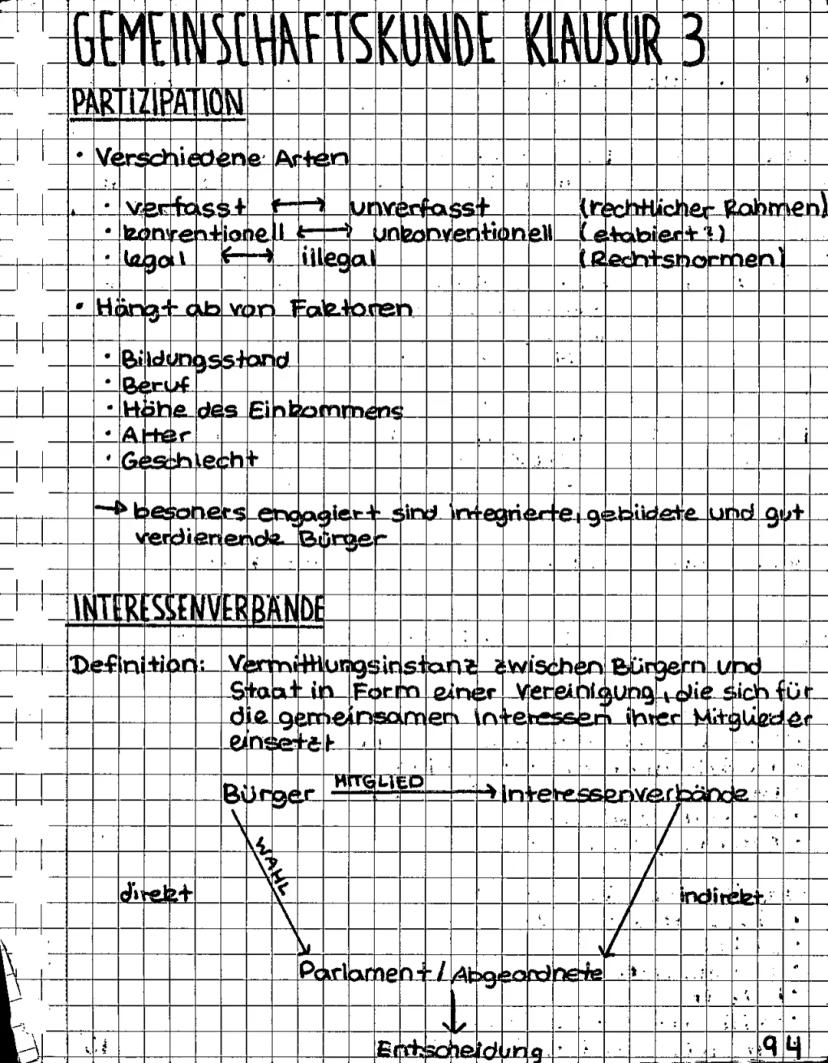 GEMEINSCHAFTSKUNDE KLAUSUR 3
PARTIZIPATION
• Verschiedene Arten
• verfasst ⟷ unverfasst (rechtlicher Rahmen)
• konventionell ⟷ unkonventionell (etabiert?)
• legal ⟷ illegal (Rechtsnormen)
• Hängt ab von Faktoren
• Bildungsstand
• Beruf
• Höhe des Einkommens
• Alter
• Geschlecht
→ besoners engagiert sind integrierte, gebildete und gut
verdienende Bürger
INTERESSENVERBÄNDE
Definition: Vermittlungsinstanz zwischen Bürgern und
Staat in Form einer Vereinigung, die sich für
die gemeinsamen Interessen ihrer Mitglieder
einsetzt
Bürger MITGLIED → Interessenverbände
WAHL
direkt indirekt
Parlament / Abgeordnete
Entscheidung 94